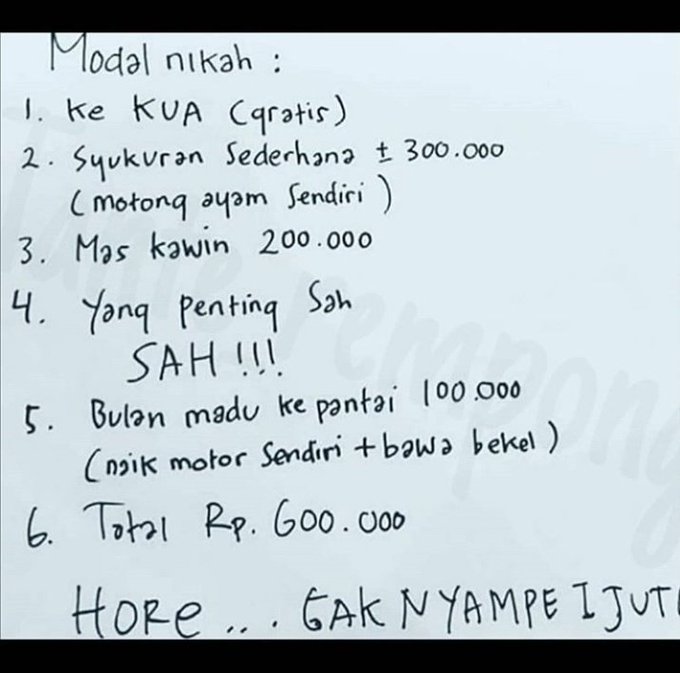 Modal nikah :
1. Ke KUA (gratis)
2. Syukuran Sederhana ± 300.000
(motong ayam Sendiri)
3. Mas kawin 200.000
4. Yang Penting Sah
SAH !!!
5. Bulan madu ke pantai 100.000
(naik motor Sendiri + bawa bekel)
6. Total Rp. 600.000
HORE ... GAK NYAMPE 1 JUT
Tante rempong